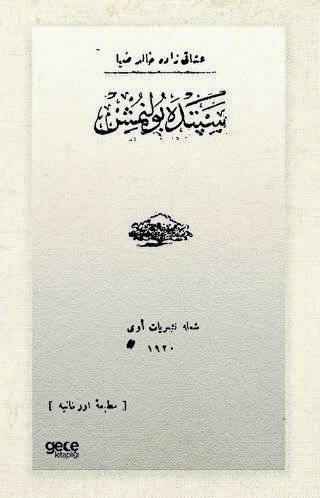 عشاقی زاده خالد ضیا
سپتده بولنمش
شعله نشریات أوی
١٩٢٠
[ مطبعهٔ اورخانیه ]
gece
kitaplığı